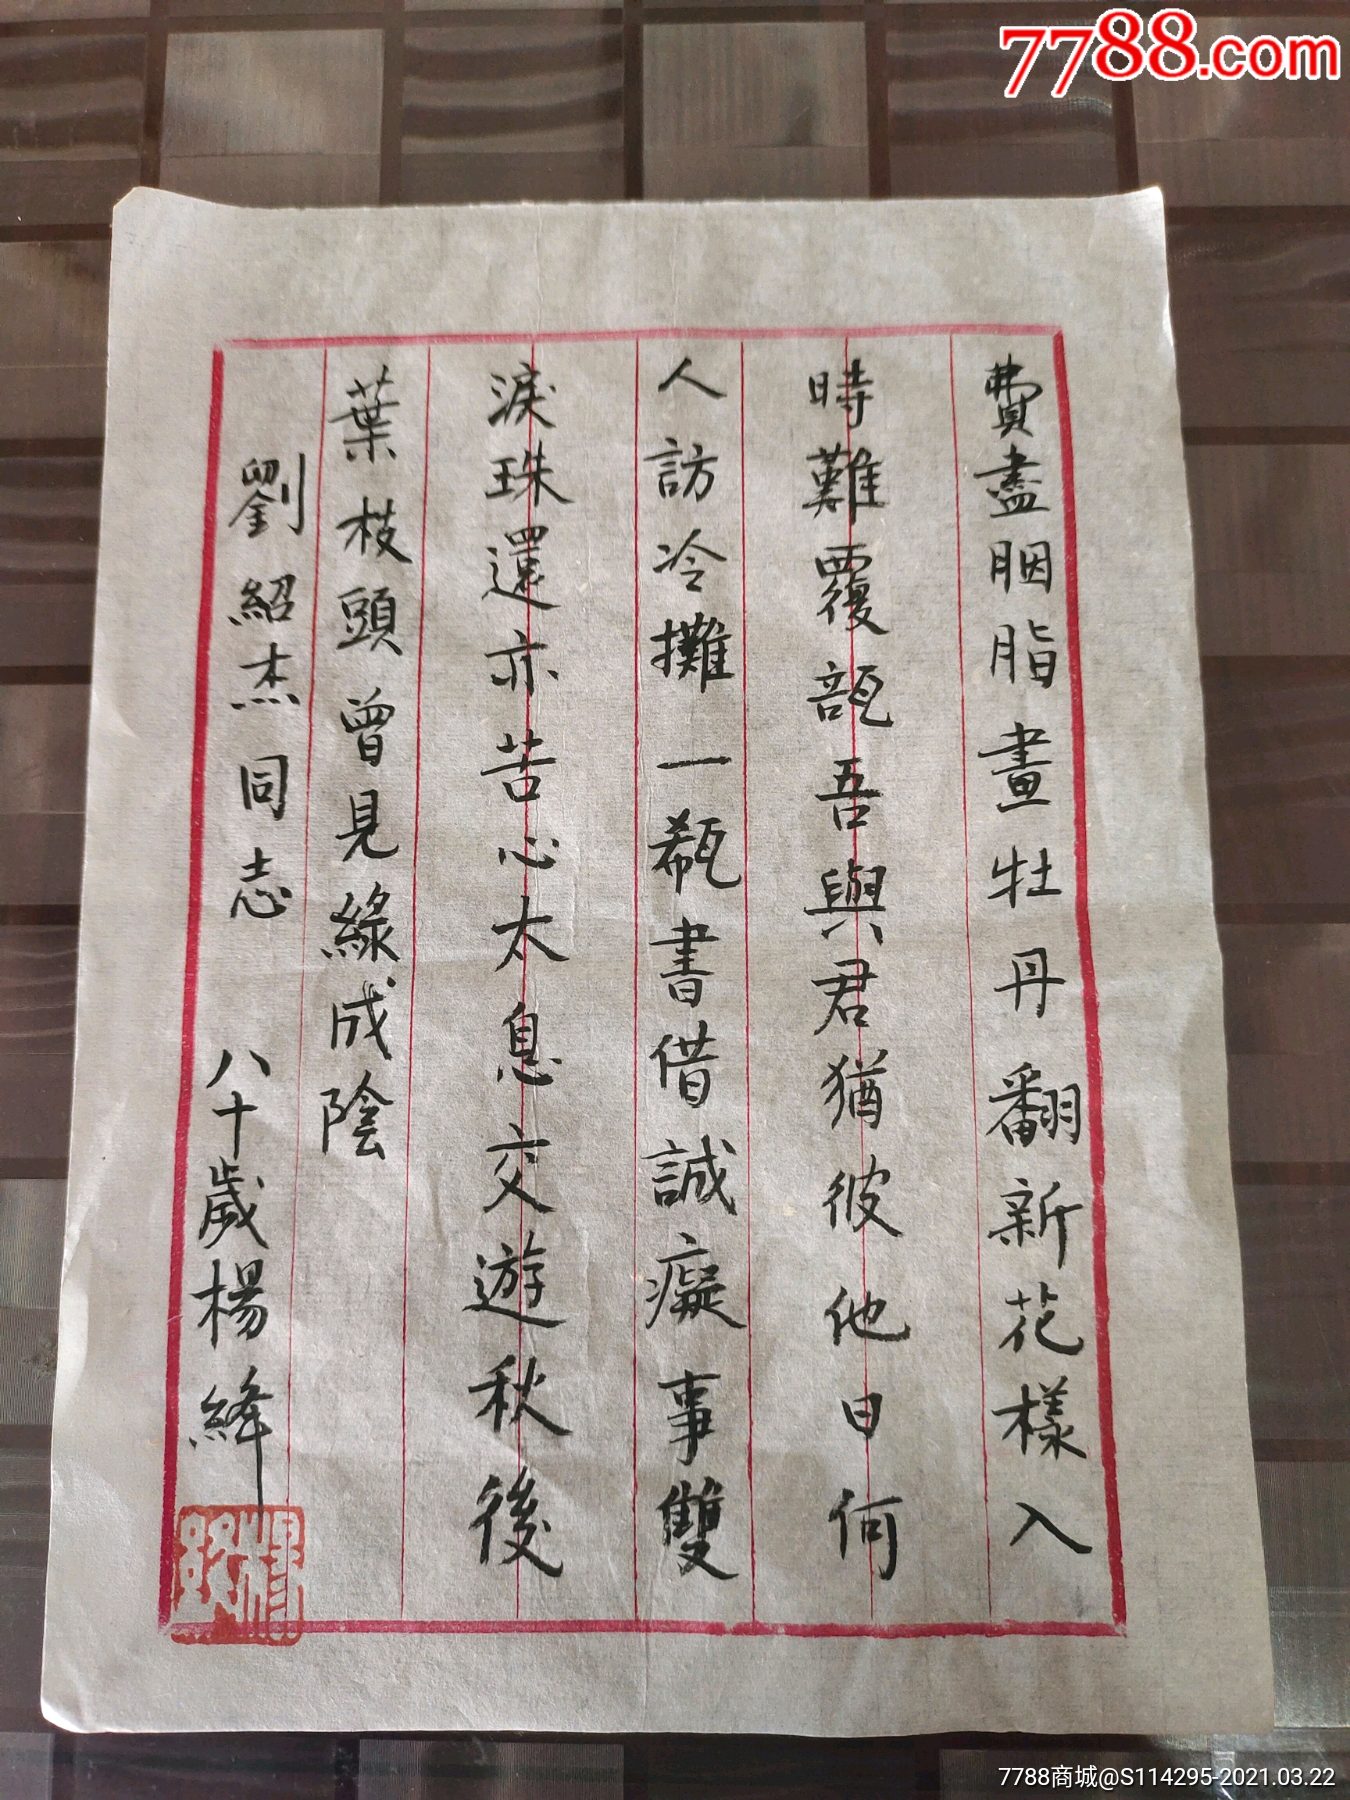 7788.com
費盡胭脂畫牡丹翻新花樣入
時難覆瓿吾與君猶彼他日何
人訪冷攤一瓻書借誠癡事雙
淚珠還亦苦心太息交遊秋後
葉枝頭曾見綠成陰
劉紹杰同志
八十歲楊絳
7788商城@S114295-2021.03.22